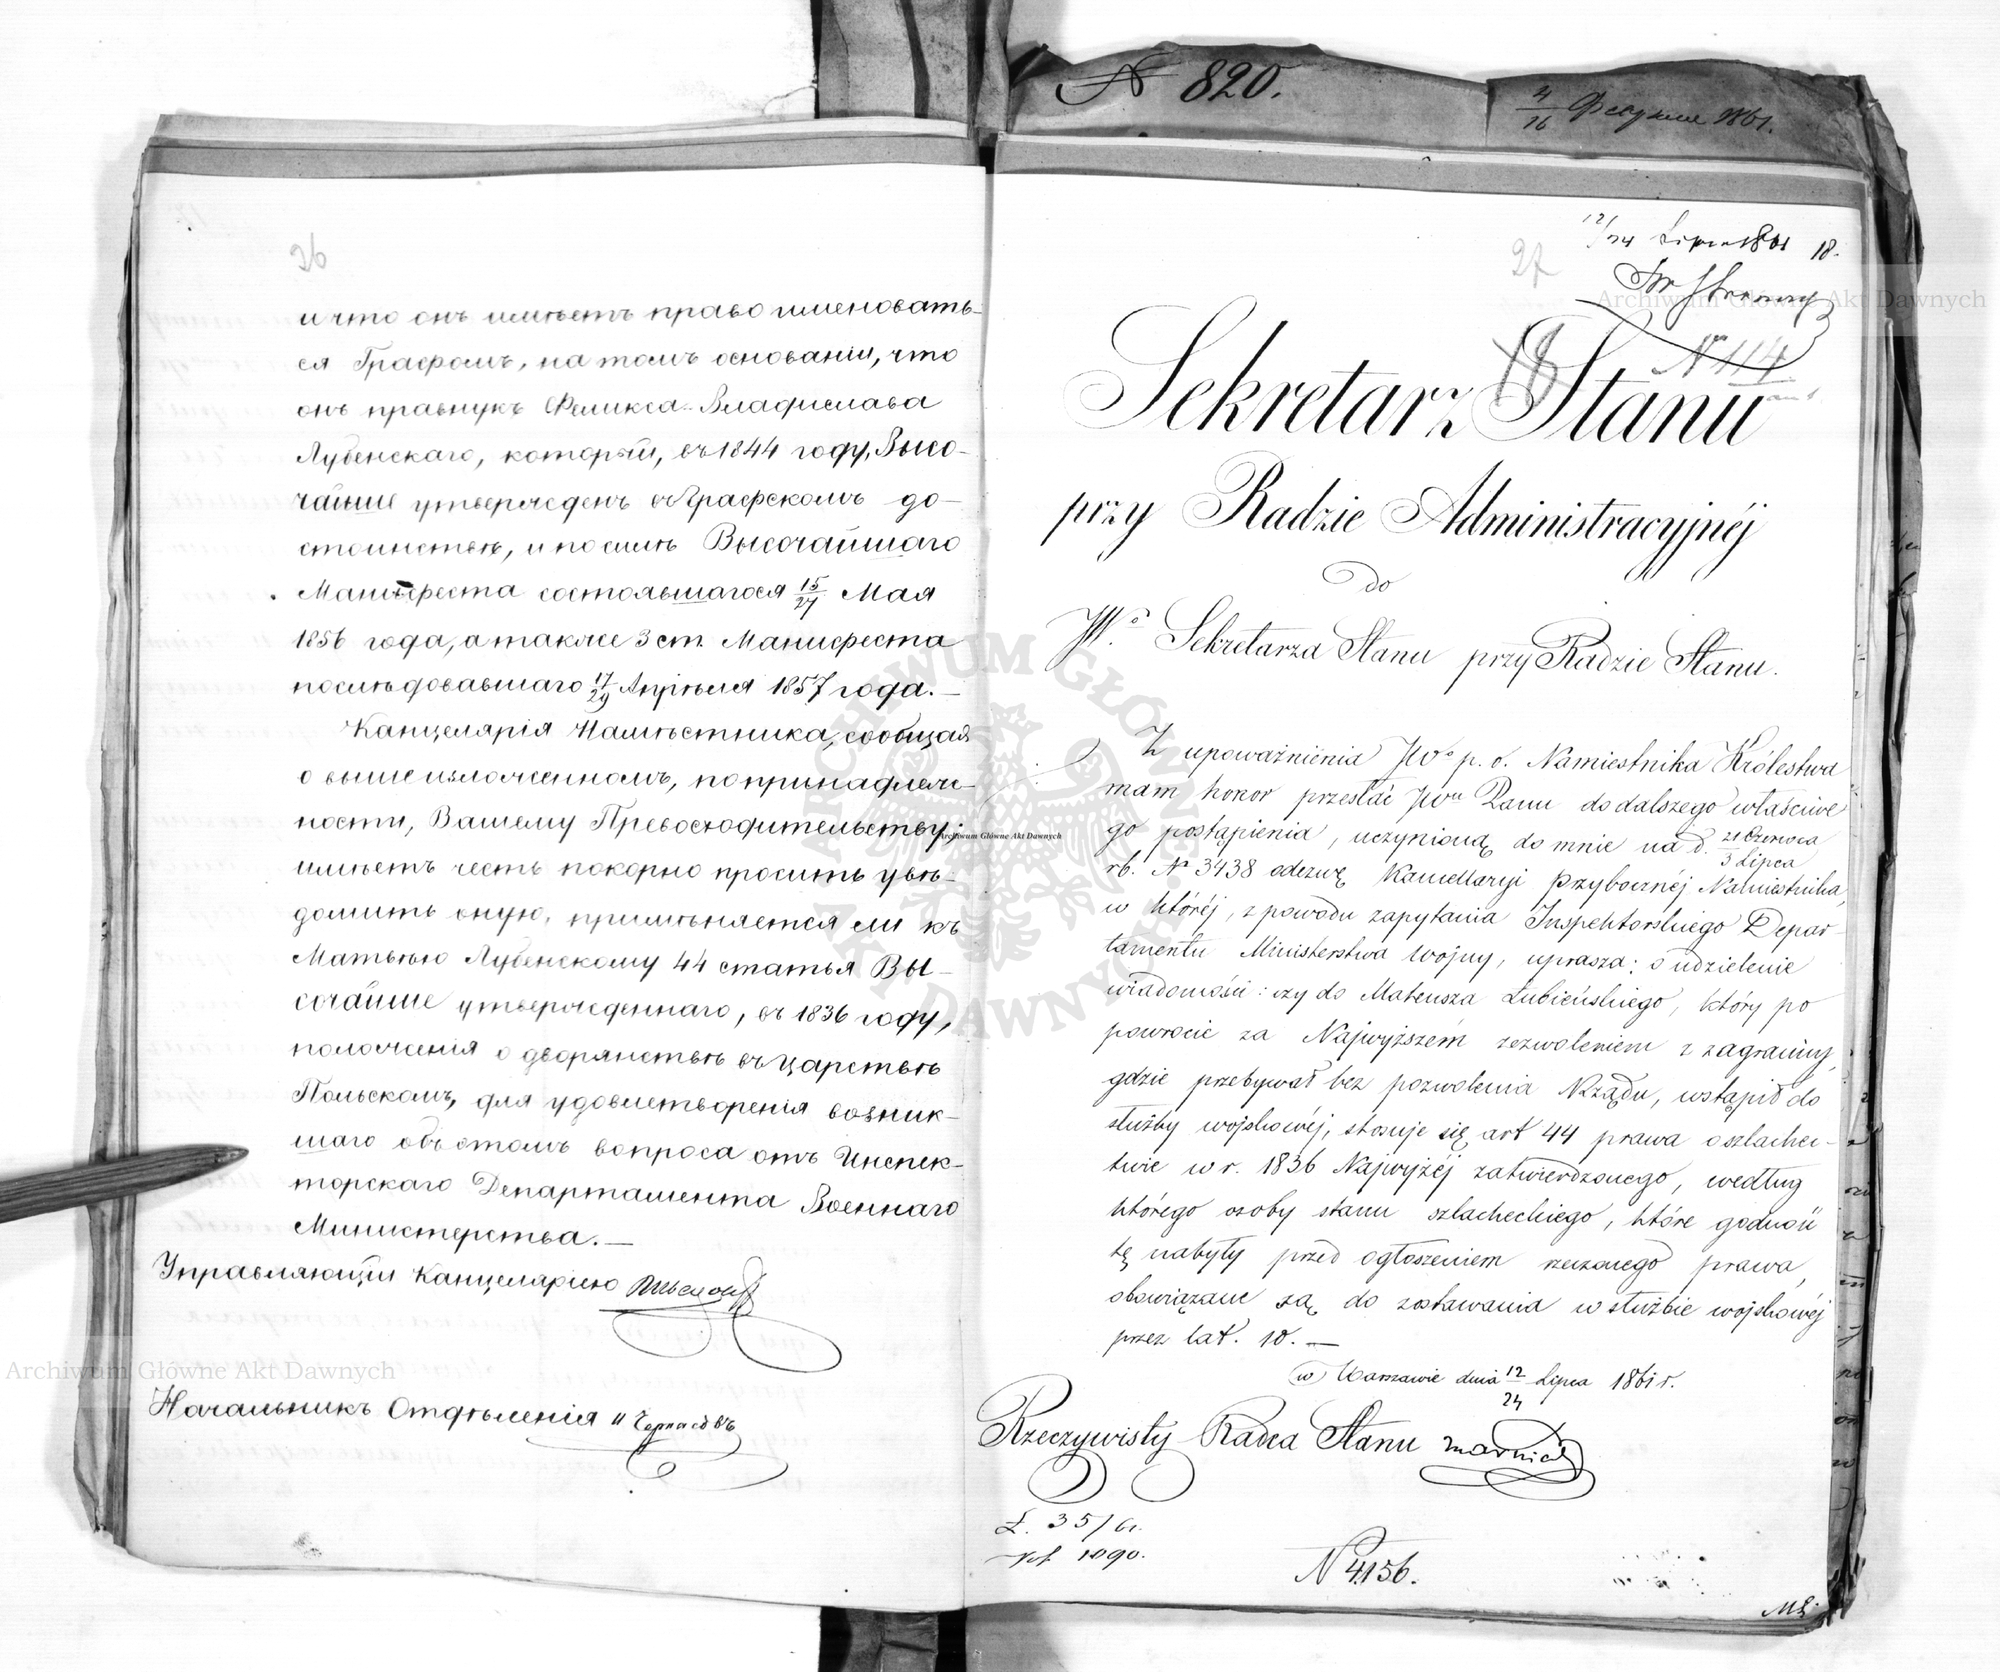 26
и что онъ имѣетъ право именовать-
ся Графомъ, на томъ основаніи, что
онъ правнукъ Феликса-Владислава
Лубенскаго, который, въ 1844 году, Высо-
чайше утвержденъ въ Графскомъ до-
стоинствѣ, и по силѣ Высочайшаго
Манифеста состоявшагося 15/27 Мая
1856 года, а также 3 ст. Манифеста
послѣдовавшаго 17/29 Апрѣля 1857 года. —
Канцелярія Намѣстника, сообщая
о вышеизложенномъ, по принадлеж-
ности, Вашему Превосходительству,
имѣетъ честь покорно просить увѣ-
домить оную, примѣняется ли къ
Матвѣю Лубенскому 44 статья Вы-
сочайше утвержденнаго, въ 1836 году,
положенія о дворянствѣ въ Царствѣ
Польскомъ, для удовлетворенія возник-
шаго объ этомъ вопроса отъ Инспек-
торскаго Департамента Военнаго
Министерства. —
Управляющій Канцеляріею
Начальникъ Отдѣленія
N 820.
4/16 Февраля 1861.
12/24 Lipca 1861 18.
27
18
N 114
Sekretarz Stanu
przy Radzie Administracyjnéj
do
JWo Sekretarza Stanu przy Radzie Stanu.
Z upoważnienia JWo p. o. Namiestnika Królestwa
mam honor przesłać JWu Panu do dalszego właściwe
go postąpienia, uczynioną do mnie na d. 21 Czerwca/3 Lipca
rb. N 3438 odezwę Kancellaryi Przybocznéj Namiestnika,
w któréj, z powodu zapytania Inspektorskiego Depar-
tamentu Ministerstwa Wojny, uprasza; o udzielenie
wiadomości: czy do Mateusza Łubieńskiego, który po
powrocie za Najwyższém zezwoleniem z zagranicy,
gdzie przebywał bez pozwolenia Rządu, wstąpił do
służby wojskowéj, stosuje się art 44 prawa o szlachec-
twie w r. 1836 Najwyżéj zatwierdzonego, według
którego osoby stanu szlacheckiego, które godność
tę nabyły przed ogłoszeniem rzeczonego prawa,
obowiązane są do zostawania w służbie wojskowéj
przez lat. 10. —
w Warszawie dnia 12/24 Lipca 1861 r.
Rzeczywisty Radca Stanu
N 4156.
Archiwum Główne Akt Dawnych
Archiwum Główne Akt Dawnych
Archiwum Główne Akt Dawnych
ARCHIWUM GŁÓWNE AKT DAWNYCH